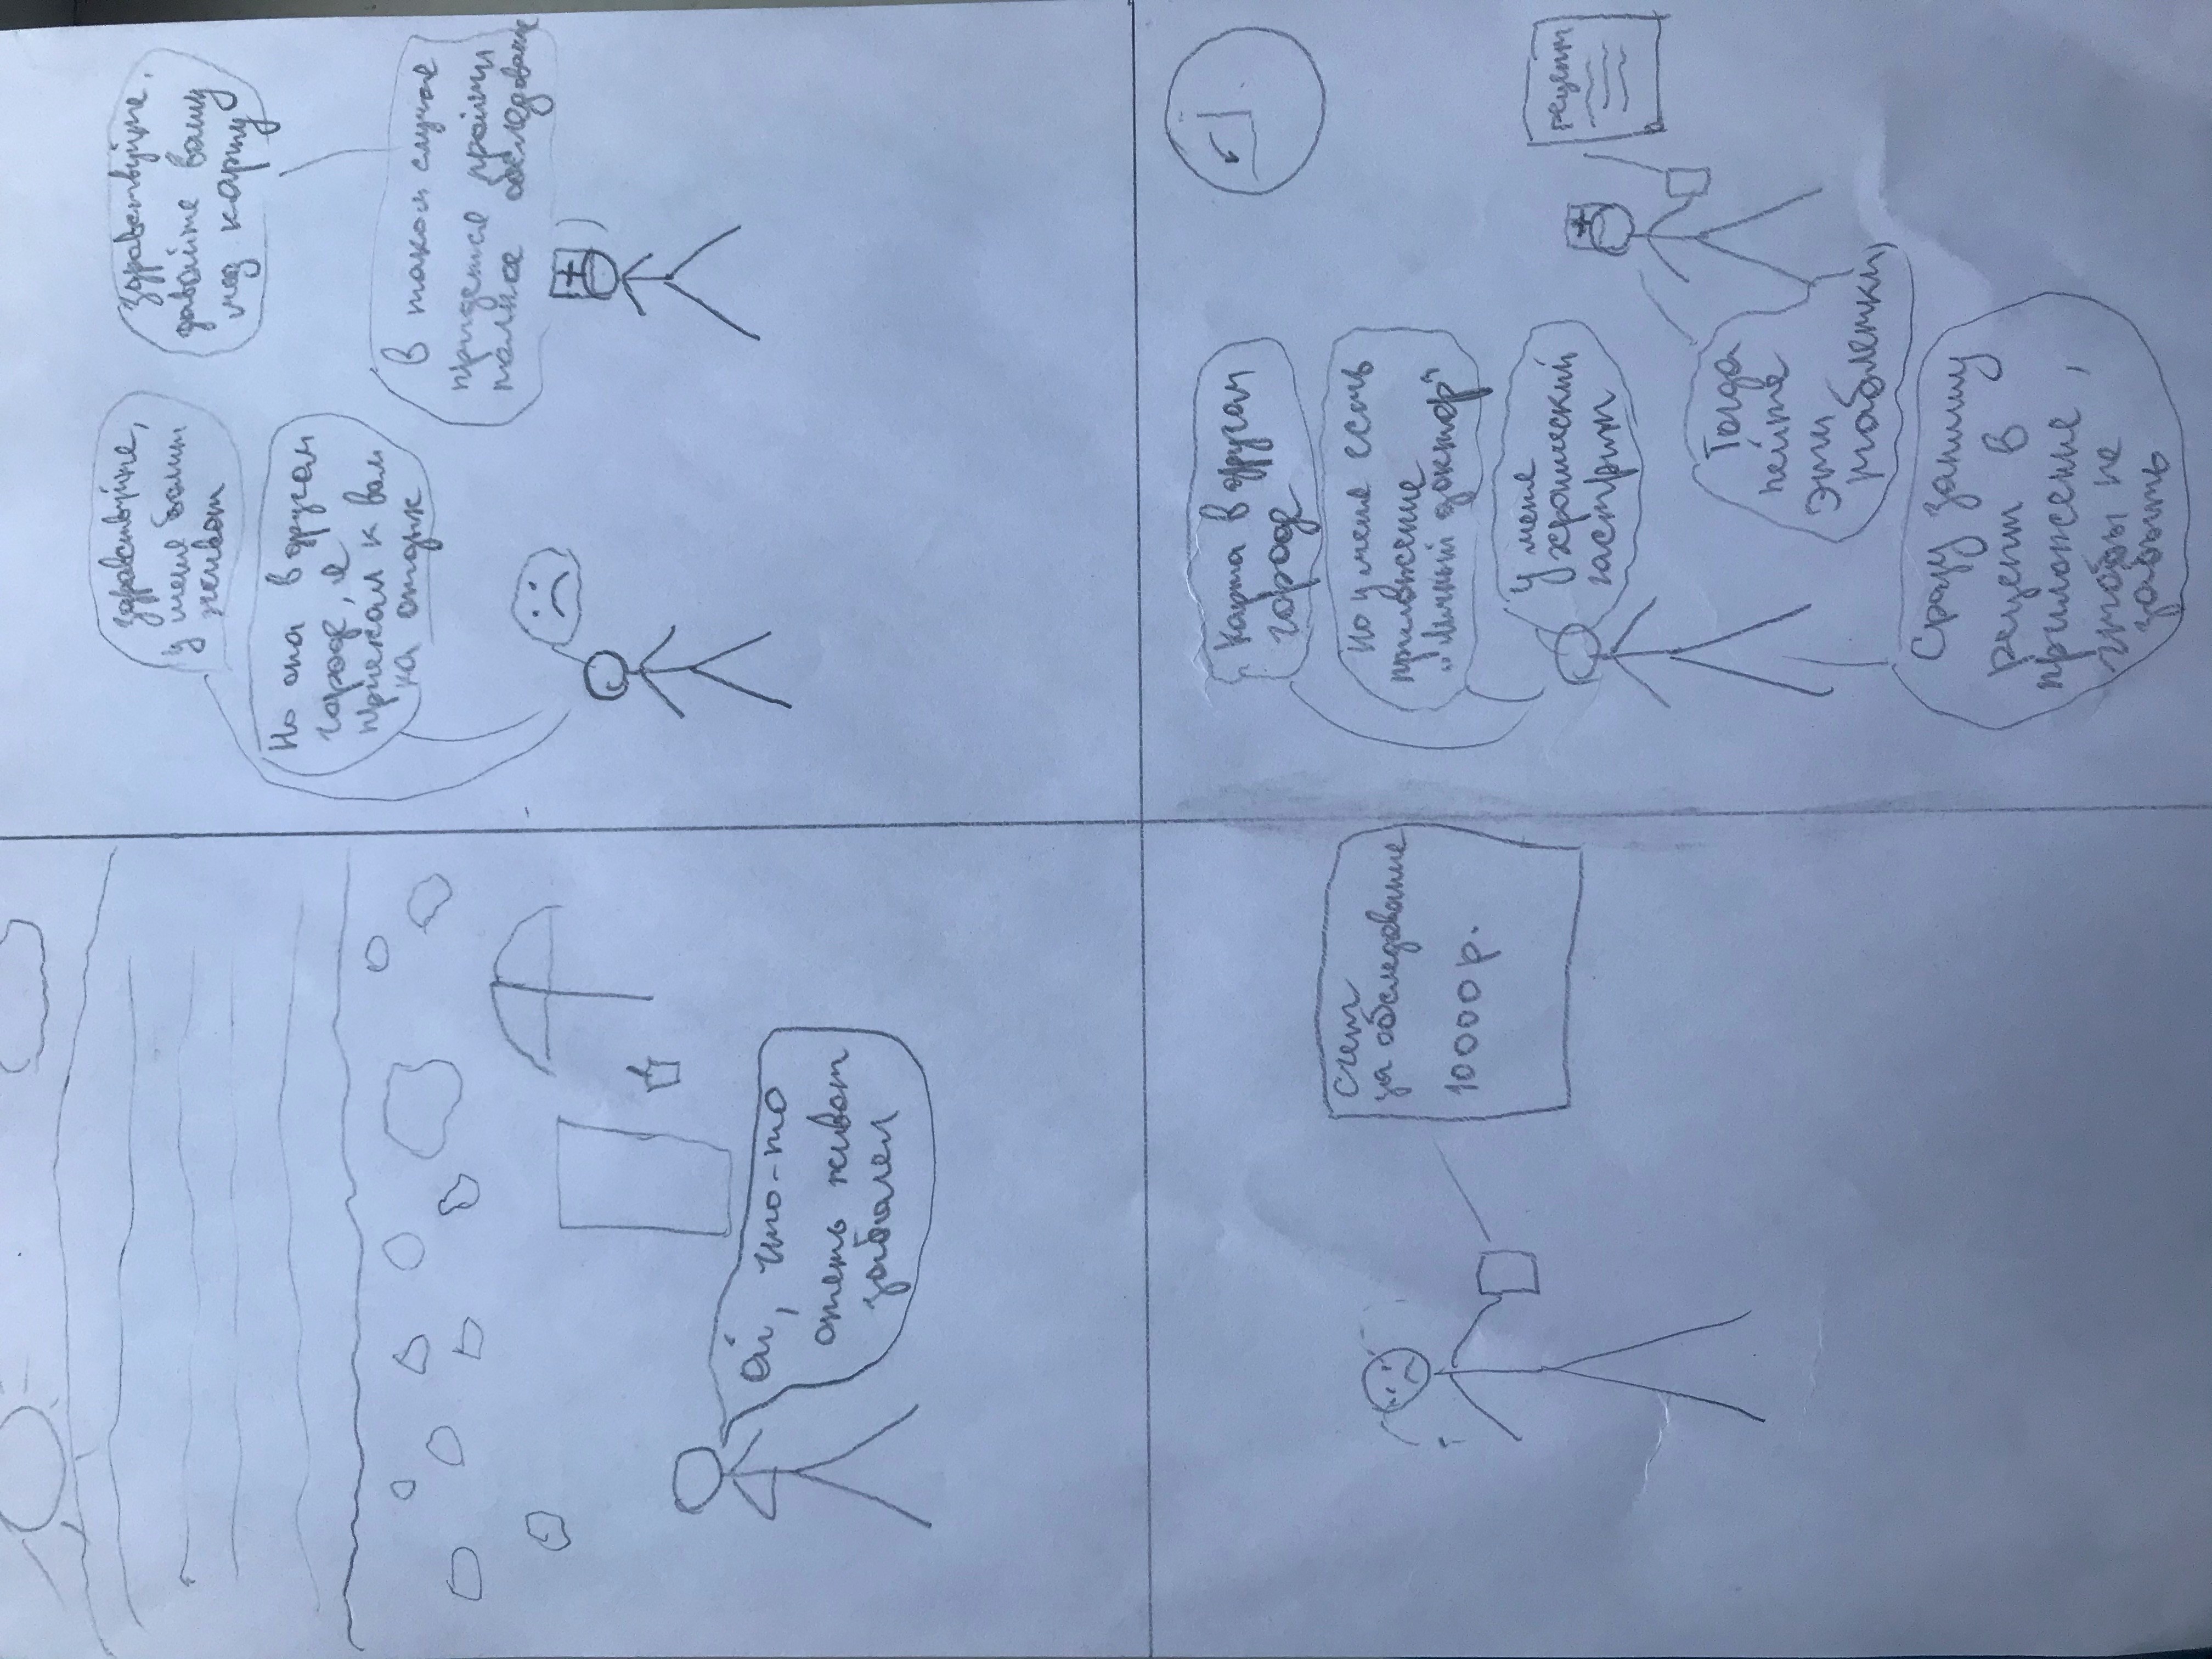 ай, что-то
опять живот
заболел
здравствуйте,
у меня болит
живот
здравствуйте,
давайте вашу
мед карту
Но она в другом
городе, я
приехал к вам
на отдых
В таком случае
придется пройти
полное обследование
Счет
за обследование
10000р.
Карта в другом
городе
Но у меня есть
приложение
"Личный доктор"
У меня
хронический
гастрит
рецепт
Тогда
пейте
эти
таблетки
Сразу запишу
рецепт в
приложение,
чтобы не
забыть